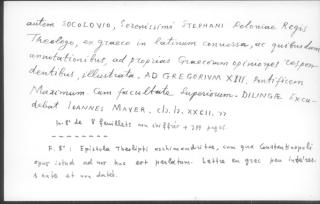 autem SOCOLOVIO, Serenissimi STEPHANI Poloniae Regis
Theologo, ex graeco in latinum conuersa, ac quibusdam
annotationibus, ad propias Graecorum opiniones respon
dentibus, illustrata. AD GREGORIVM XIII. Pontificem
Maximum. Cum facultate Superiorum. DILINGÆ Excu
debat IOANNES MAYER. XXCII.
In-8° de 8 feuillets non chiffrés + pages.
F. 8ᵛ: Epistola Theolipti archimandritae, cum qua Constantinopoli
opus istud ad nos huc est perlatum. Lettre en grec peu
et non datée.